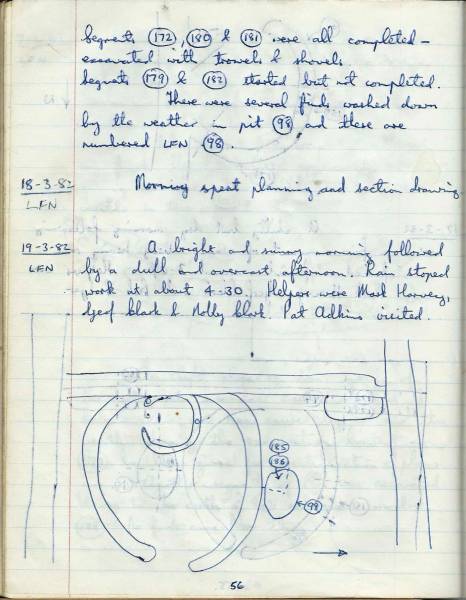 Segments (172), (180) & (181) were all completed -
excavated with trowels & shovels.
Segments (179) & (182) started but not completed.
There were several finds washed down
by the weather in pit (98) and these are
numbered LFN (98).
18-3-82
LFN
Morning spent planning and section drawing
19-3-82
LFN
A bright and sunny morning followed
by a dull and overcast afternoon. Rain stoped
work at about 4-30. Helpers were Mark Harvey,
Geof Clark & Molly Clark. Pat Adkins visited.
(185)
(186)
(98)
56